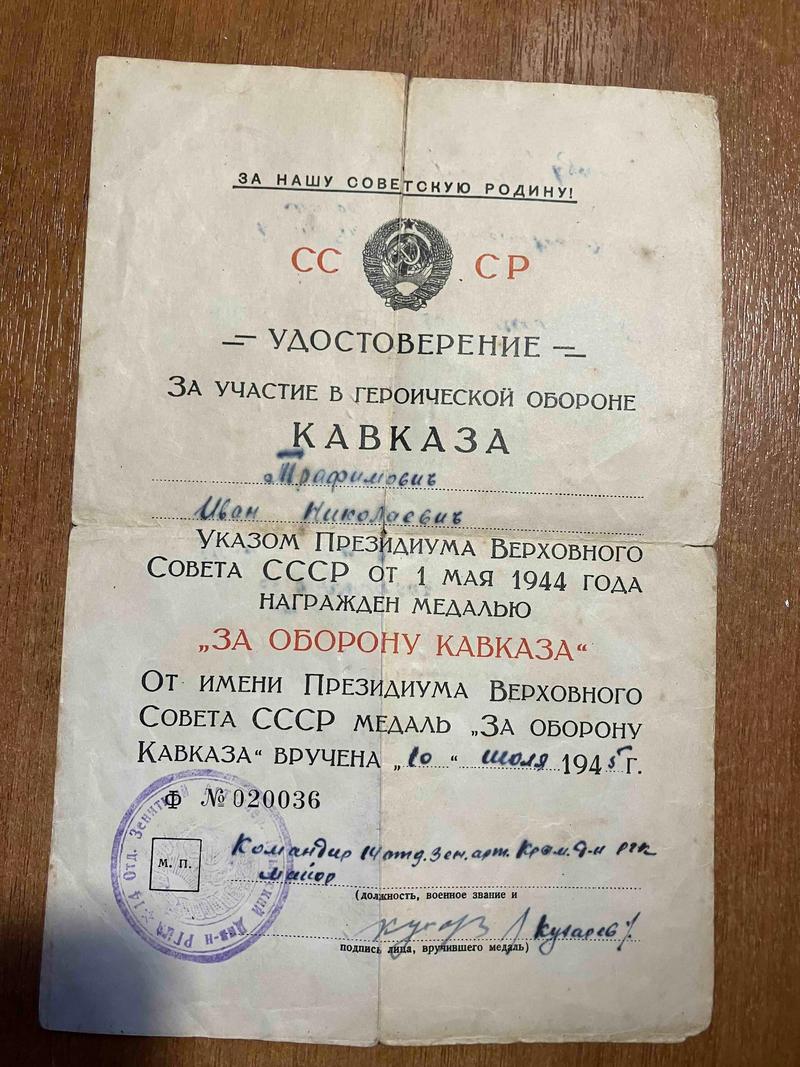 ЗА НАШУ СОВЕТСКУЮ РОДИНУ!
СС СР
УДОСТОВЕРЕНИЕ
ЗА УЧАСТИЕ В ГЕРОИЧЕСКОЙ ОБОРОНЕ
КАВКАЗА
Трафимович
Иван Николаевич
УКАЗОМ ПРЕЗИДИУМА ВЕРХОВНОГО
СОВЕТА СССР ОТ 1 МАЯ 1944 ГОДА
НАГРАЖДЕН МЕДАЛЬЮ
„ЗА ОБОРОНУ КАВКАЗА“
ОТ ИМЕНИ ПРЕЗИДИУМА ВЕРХОВНОГО
СОВЕТА СССР МЕДАЛЬ „ЗА ОБОРОНУ
КАВКАЗА“ ВРУЧЕНА „10“ июля 1945 Г.
Ф № 020036
14 Отд. Зенитный Див-н РГК
М. П.
Командир 14 отд. зен. арт. Крас. д-н ргк
майор
(должность, военное звание и
/Кугаев/
подпись лица, вручившего медаль)